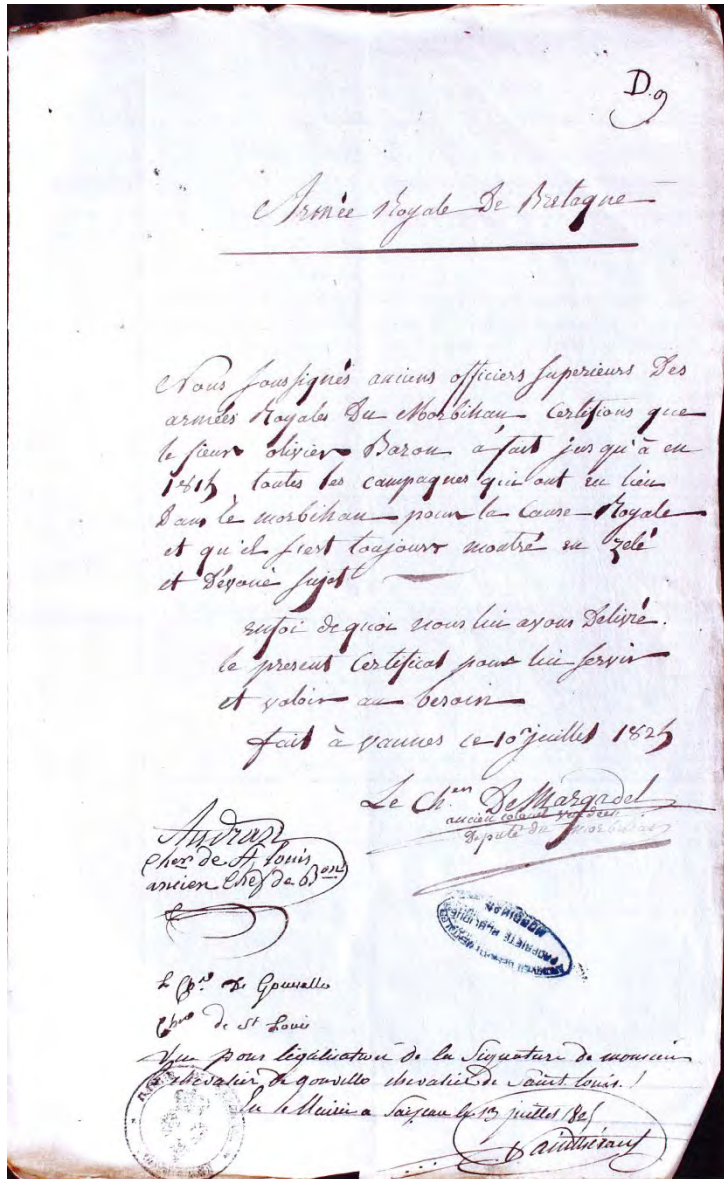 D. 9
Armée Royale De Bretagne
Nous soussignés anciens officiers superieurs Des
armées Royales Du Morbihan Certifions que
le sieur olivier Baron à fait jusqu'à en
1815 toutes les campagnes qui ont eu lieu
Dans le morbihan pour la Cause Royale
et qu'il s'est toujours montré un zelé
et Dévoué sujet
enfoi de quoi nous lui avons Delivré
le present Certificat pour lui servir
et valoir au besoin
fait à vannes ce 10 juillet 1825
Le Ch.er De Margadel
ancien colonel
Deputé du morbihan
Cher de St Louis
ancien Chef de Bon
ARCHIVES DEPARTEMENTALES
PROPRIÉTÉ PUBLIQUE
MORBIHAN
Le De Gouvello
Cher de St Louis
Vu pour légalisation de la Signature de monsieur
chevalier de gouvello chevalier de saint louis
En Mairie a Sarzeau le 13 juillet 1825